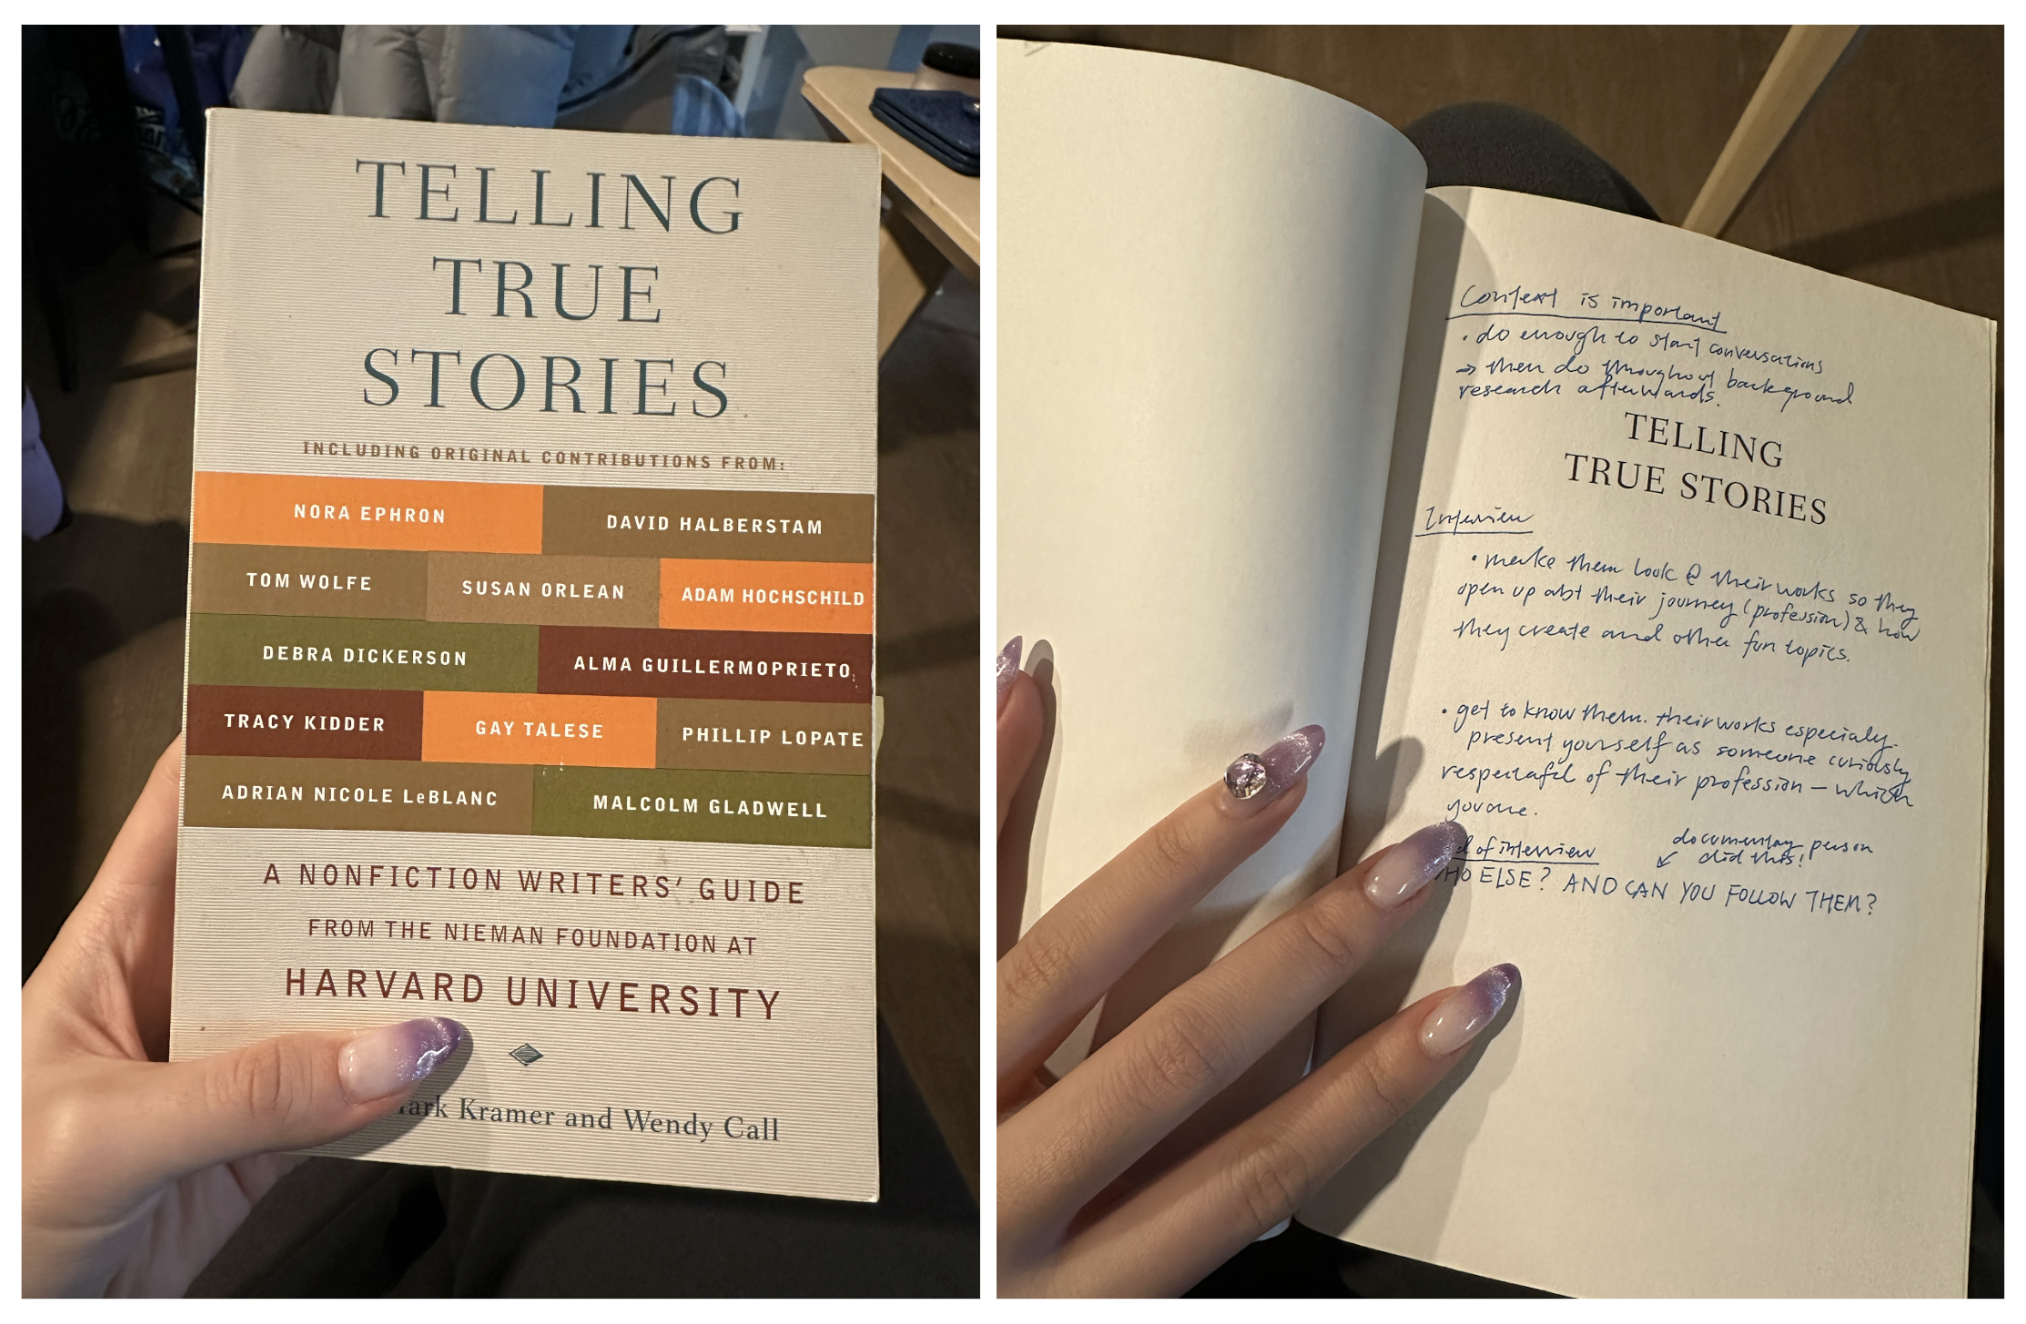 TELLING
TRUE
STORIES
INCLUDING ORIGINAL CONTRIBUTIONS FROM:
NORA EPHRON DAVID HALBERSTAM
TOM WOLFE SUSAN ORLEAN ADAM HOCHSCHILD
DEBRA DICKERSON ALMA GUILLERMOPRIETO
TRACY KIDDER GAY TALESE PHILLIP LOPATE
ADRIAN NICOLE LeBLANC MALCOLM GLADWELL
A NONFICTION WRITERS' GUIDE
FROM THE NIEMAN FOUNDATION AT
HARVARD UNIVERSITY
Kramer and Wendy Call
Context is important
• do enough to start conversations
→ then do throughout background
research afterwards.
TELLING
TRUE STORIES
Interview
• make them look @ their works so they
open up abt their journey (profession) & how
they create and other fun topics.
• get to know them. their works especialy.
present yourself as someone curiously
respectful of their profession – which
you are.
of interview
documentary person
↙ did this!
ELSE? AND CAN YOU FOLLOW THEM?